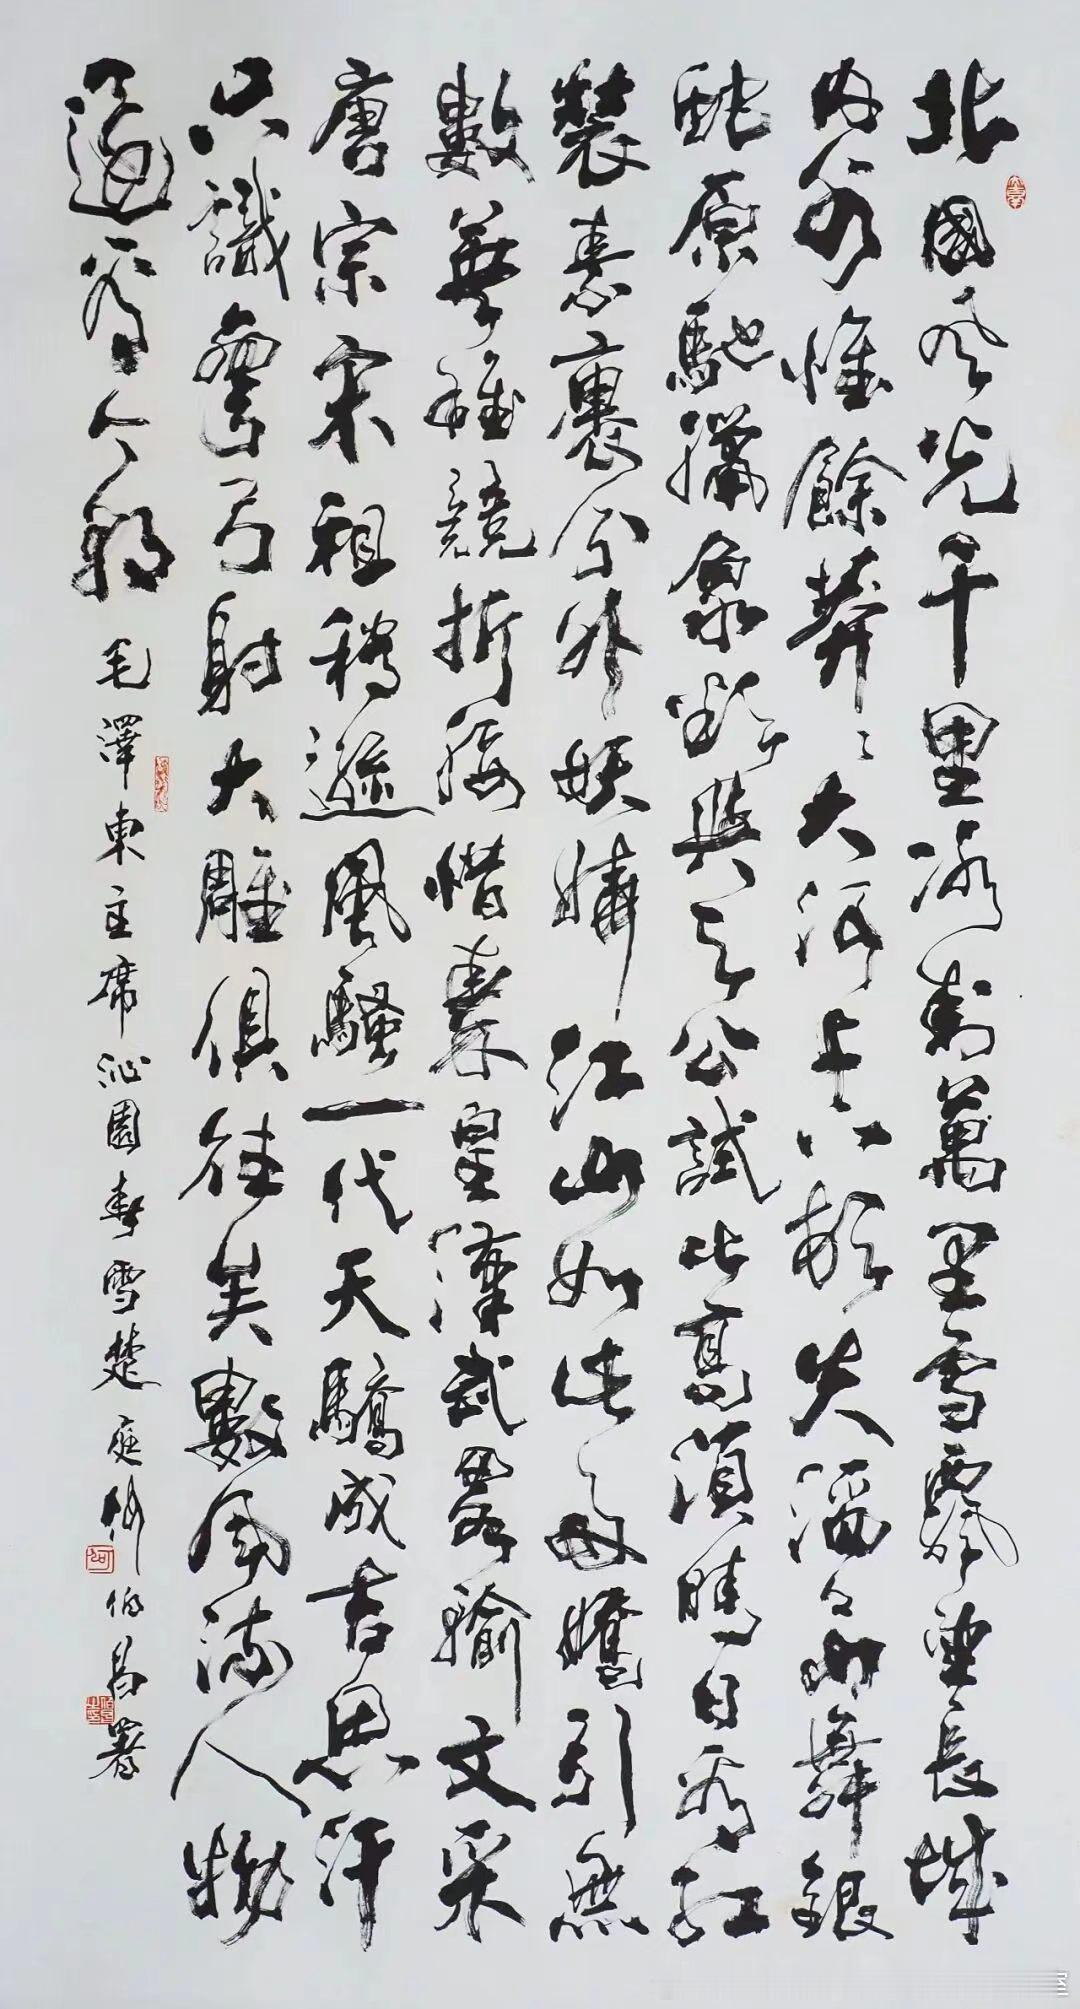 北國風光千里冰封萬里雪飄望長城
內外惟餘莽々大河上下頓失滔々山舞銀
蛇原馳蠟象欲與天公試比高須晴日看紅
裝素裹分外妖嬈江山如此多嬌引無
數英雄競折腰惜秦皇漢武略輸文采
唐宗宋祖稍遜風騷一代天驕成吉思汗
只識彎弓射大雕俱往矣數風流人物
還看今朝
毛澤東主席沁園春雪楚庭何伯昌署